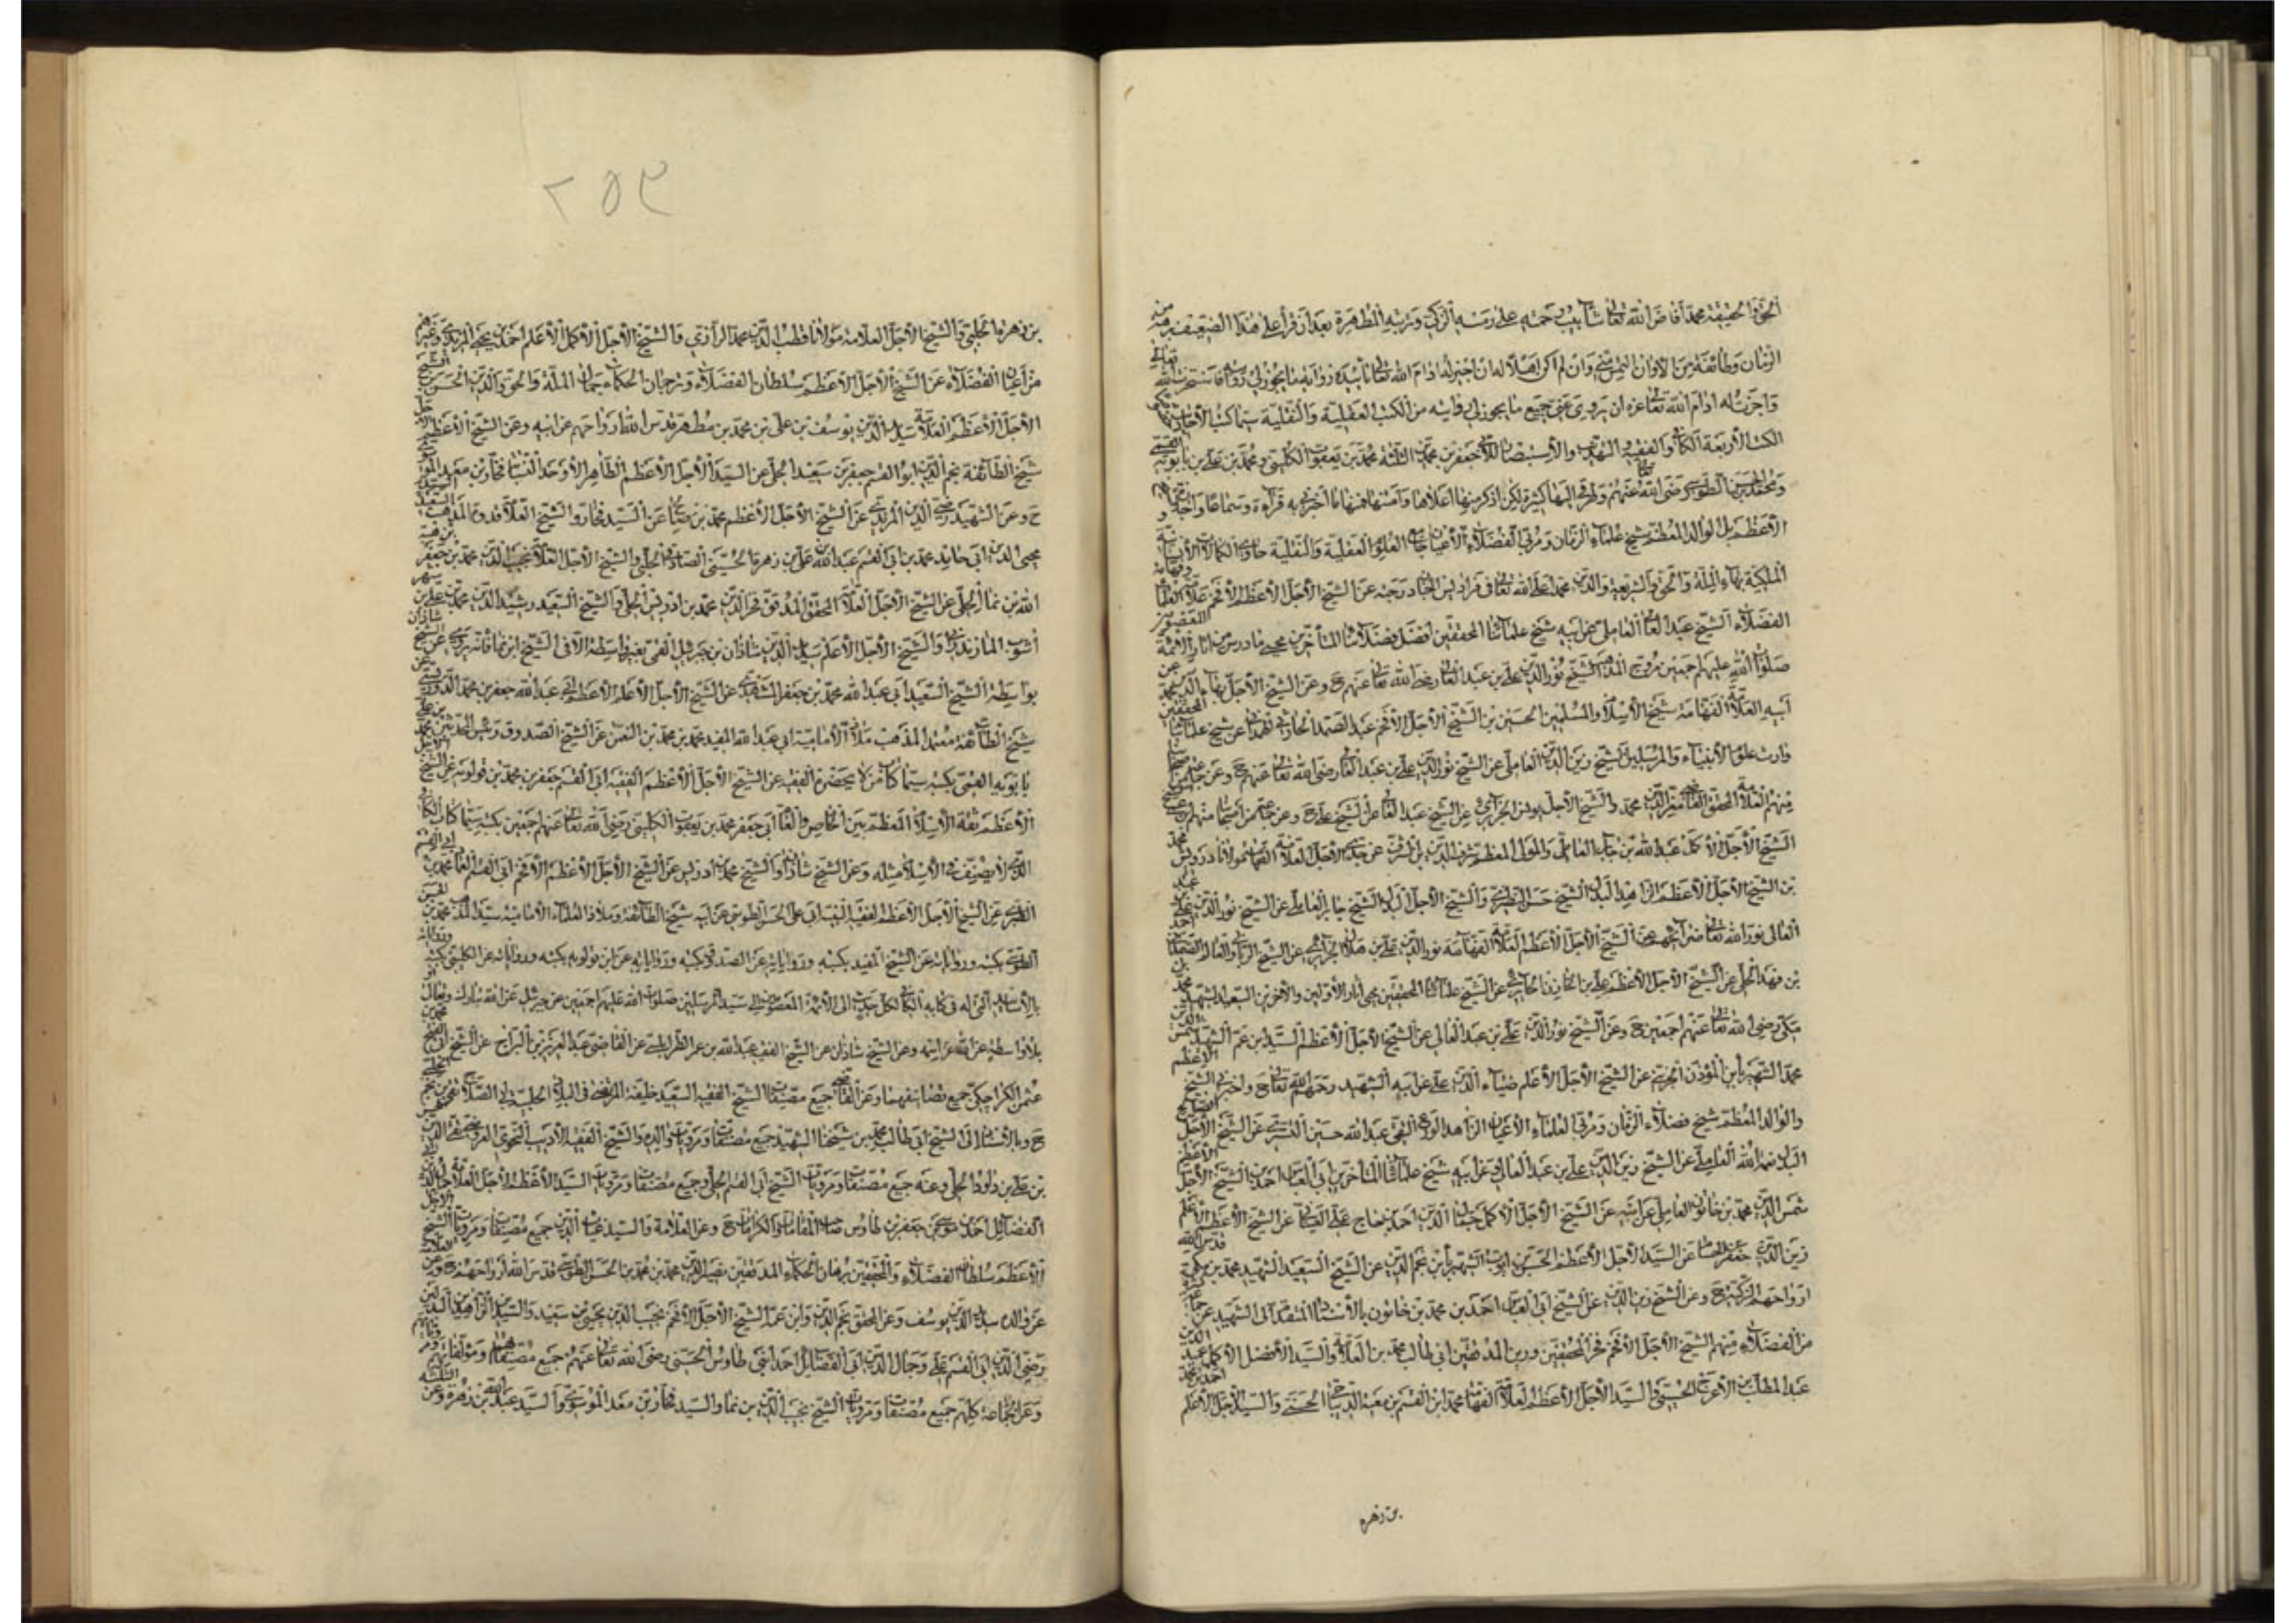 الحق والحقيقة محمد أفاض الله تعالى شآبيب رحمته على رمسه الزكي وتربته المطهرة بعد أن قرأ على هذا الضعيف برهة من
الزمان وطائفة من الأوان التمس مني وإن لم أكن أهلا لذلك أن أجيز له أدام الله تعالى تأييده رواية ما يجوز لي روايته فاستخرت الله تعالى
وأجزت له أدام الله تعالى عزه أن يروي عني جميع ما يجوز لي روايته من الكتب العقلية والنقلية سيما كتب الأخبار
الكتب الأربعة الكافي والفقيه والتهذيب والاستبصار للأبي جعفرين محمدين الثلثة محمد بن يعقوب الكليني ومحمد بن علي بن بابويه القمي
ومحمد بن الحسن الطوسي رضي الله تعالى عنهم وطرقي إليها كثيرة لكن أذكر منها أعلاها وأمتنها فمنها ما أخبرني به قراءة وسماعا وإجازة
الأعظم بل الوالد المعظم شيخ علماء الزمان ومربي الفضلاء الأعيان جامع العلوم العقلية والنقلية حاوي الكمالات الإنسانية
الملكية بهاء الملة والحق والشريعة والدين محمد أعلى الله تعالى في فراديس الجنان درجته عن الشيخ الأجل الأعظم الأفخم علامة العلماء وفهامة
الفضلاء الشيخ عبد العالي العاملي عن أبيه شيخ علمائنا المحققين أفضل فضلائنا المتأخرين محيي ما درس من آثار الأئمة المعصومين
صلوات الله عليهم أجمعين مروج المذهب الشيخ نور الدين علي بن عبد العالي رضي الله تعالى عنهم ح وعن الشيخ الأجل بهاء الدين محمد عن
أبيه العلامة الفهامة شيخ الإسلام والمسلمين الحسين بن الشيخ الأجل الأفخم عبد الصمد الحارثي الهمداني عن شيخ علمائنا المحققين
وارث علوم الأنبياء والمرسلين الشيخ زين الدين العاملي عن الشيخ نور الدين علي بن عبد العالي رضي الله تعالى عنهم ح وعن جماعة من
منهم العلامة المحقق القاضي معز الدين محمد والشيخ الأجل يونس الجزائري عن الشيخ عبد العالي عن الشيخ علي ح وعن جم من أصحابنا منهم
الشيخ الأجل الأكمل عبد الله بن جابر العاملي والمولى المعظم شرف الدين عن جدي الأجل العلامة الفهامة مولانا درويش محمد
بن الشيخ الأجل الأعظم الزاهد البدل الشيخ حسن النطنزي والشيخ الأجل البدل الشيخ جابر العاملي عن الشيخ نور الدين علي بن عبد
العالي نور الله تعالى ضرايحهم عن الشيخ الأجل الأعظم العلامة الفهامة نور الدين علي بن هلال الجزائري عن الشيخ الرباني والعالم الصمداني أحمد
بن فهد الحلي عن الشيخ الأجل الأعظم علي بن الخازن الحائري عن الشيخ علمائنا المحققين محيي آثار الأولين والآخرين السعيد الشهيد محمد بن
مكي رضي الله تعالى عنهم أجمعين ح وعن الشيخ نور الدين علي بن عبد العالي عن الشيخ الأجل الأعظم السيد بن عم الشهيد شمس الدين
محمد الشهير بابن المؤذن الجزيني عن الشيخ الأجل الأعلم ضياء الدين علي عن أبيه الشهيد رحمهما الله تعالى ح وأخبرني الشيخ الأعظم
والوالد المعظم شيخ فضلاء الزمان ومربي العلماء الأعيان الزاهد الورع التقي عبد الله حسين التستري عن الشيخ الأجل
البدل نعمة الله العاملي عن الشيخ زين الدين علي بن عبد العالي وعن أبيه شيخ علمائنا المتأخرين أبي العباس أحمد بن الشيخ الأجل الأعظم
شمس الدين محمد بن خاتون العاملي عن أبيه عن الشيخ الأجل الأكمل جمال الدين أحمد بن الحاج علي العيناثي عن الشيخ الأعظم الأعلم
زين الدين جعفر بن الحسام عن السيد الأجل الأعظم الحسن بن أيوب الشهير بابن نجم الدين عن الشيخ السعيد الشهيد محمد بن مكي قدس الله
أرواحهم الزكية ح وعن الشيخ زين الدين عن الشيخ أبي العباس أحمد بن محمد بن خاتون بالأسناد المتقدم إلى الشهيد عن جماعة كثيرة
من الفضلاء منهم الشيخ الأجل الأفخم فخر المحققين وزين المدققين أبي طالب محمد بن العلامة والسيد الأفضل الأكمل عميد الدين
عبد المطلب بن الأعرج الحسيني والسيد الأجل الأعظم العلامة الفهامة محمد بن القسم بن معية الديباجي الحسني والسيد الأجل الأعلم أحمد بن محمد
بن زهره
٢٥٣
بن زهرة الحلبي والشيخ الأجل العلامة مولانا قطب الدين محمد الرازي والشيخ الأجل الأكمل الأعلم أحمد بن يحيى المزيدي وغيرهم
من أعيان الفضلاء عن الشيخ الأجل الأعظم سلطان الفضلاء وترجمان الحكماء جمال الملة والحق والدين الحسن بن الشيخ
الأجل الأعظم العلامة سديد الدين يوسف بن علي بن محمد بن مطهر قدس الله أرواحهم عن أبيه وعن الشيخ الأعظم الأجل
شيخ الطائفة نجم الدين أبو القسم جعفر بن سعيد الحلي عن السيد الأجل الأعظم الطاهر الأوحد النسابة فخار بن معد الموسوي
ح وعن الشهيد رضي الدين المزيدي عن الشيخ الأجل الأعظم محمد بن صالح عن السيد فخار والشيخ العلامة قدوة المذهب السيد السعيد
محيي الدين أبي حامد محمد بن أبي القسم عبد الله بن علي بن زهرة الحسيني الصادقي الحلبي والشيخ الأجل العلامة نجيب الدين محمد بن جعفر بن هبة
الله بن نما الحلي عن الشيخ الأجل العلامة المحقق المدقق فخر الدين محمد بن إدريس الحلي والشيخ السعيد رشيد الدين محمد بن علي بن شهر
آشوب المازندراني والشيخ الأجل الأعلم سديد الدين شاذان بن جبرئيل القمي بغير واسطة إلا في الشيخ ابن نما فإنه يروي عن الشيخ شاذان
بواسطة الشيخ السعيد أبي عبد الله محمد بن جعفر المشهدي عن الشيخ الأجل الأعلم الأعظم أبي عبد الله جعفر بن محمد الدوريستي عن
شيخ الطائفة معتمد المذهب ملاذ الأمامية أبي عبد الله المفيد محمد بن محمد بن النعمن عن الشيخ الصدوق رئيس المحدثين محمد بن علي بن
بابويه القمي بكتبه سيما كتاب من لا يحضره الفقيه عن الشيخ الأجل الأعظم الفقيه أبي القسم جعفر بن محمد بن قولويه عن الشيخ الأجل
الأعظم ثقة الإسلام المعظم بين الخاص والعام أبي جعفر محمد بن يعقوب الكليني رضي الله تعالى عنهم أجمعين بكتبه سيما كتاب الكافي
الذي لم يصنف في الإسلام مثله وعن الشيخ شاذان والشيخ محمد بن إدريس عن الشيخ الأجل الأعظم الأفخم أبي القسم العماد محمد بن أبي القسم
الطبري عن الشيخ الأجل الأعظم الفقيه النبيه أبي علي الحسن الطوسي عن أبيه شيخ الطائفة وملاذ العلماء الأمامية سيد المذهب محمد بن الحسن
الطوسي بكتبه ورواياته عن الشيخ المفيد بكتبه ورواياته عن الصدوق بكتبه ورواياته عن ابن قولويه بكتبه ورواياته عن الكليني بكتبه ورواياته
بالأسانيد التي له في كتابه الكافي لكل حديث إلى الأئمة المعصومين إلى سيد المرسلين صلوات الله عليهم أجمعين عن جبرئيل عن الله تبارك وتعالى أو
بلا واسطة عن الله عز اسمه وعن الشيخ شاذان عن الشيخ الفقيه عبد الله بن عمر الطرابلسي عن القاضي عبد العزيز بن البراج عن الشيخ أبي الفتح محمد بن
عثمن الكراجكي جميع تصانيفهما وعن القاضي جميع مصنفات الشيخ الفقيه السعيد خليفة المرتضى في البلاد الحلبية أبي الصلاح تقي بن نجم الحلبي
ح وبالأسناد إلى الشيخ أبي طالب محمد بن شيخنا الشهيد جميع مصنفات ومرويات والده والشيخ الفقيه الأديب النحوي العروضي تقي الدين
بن علي بن داود الحلي وعنه جميع مصنفات ومرويات الشيخ أبي القسم الحلي وجميع مصنفات ومرويات السيد الأعظم الأجل العلامة جمال الدين أبي
الفضائل أحمد بن موسى بن جعفر بن طاوس صاحب المقامات والكرامات ح وعن العلامة والسيد غياث الدين جميع مصنفات ومرويات الشيخ الأجل
الأعظم سلطان الفضلاء والمحققين برهان الحكماء المدققين نصير الدين محمد بن محمد بن الحسن الطوسي قدس الله أرواحهم ح وعن العلامة
عن والده سديد الدين يوسف وعن المحقق نجم الدين وابن عمه الشيخ الأجل الأفخم نجيب الدين يحيى بن سعيد والسيدين الزاهدين البدلين
رضي الدين أبي القسم علي وجمال الدين أبي الفضائل أحمد ابني طاوس الحسني رضي الله تعالى عنهم جميع مصنفاتهم ومؤلفاتهم ومروياتهم
وعن الجماعة كلهم جميع مصنفات ومرويات الشيخ نجيب الدين بن نما والسيد فخار بن معد الموسوي والسيد عبد الله بن زهرة وعن